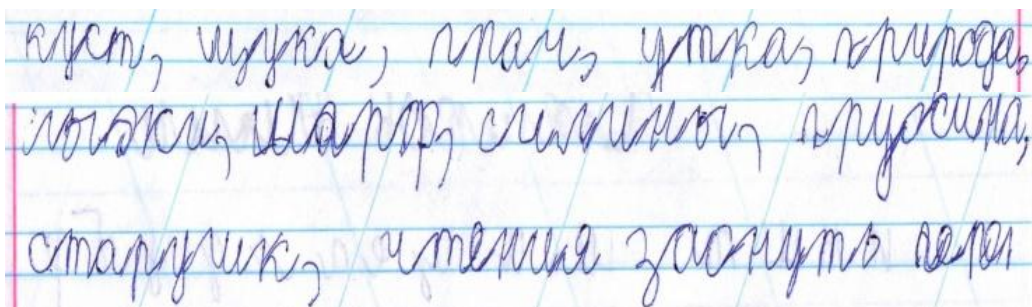 куст, щука, грач, утка, природа,
лыжи, шарф, снежины, пружина,
старушк, чтения заснуть